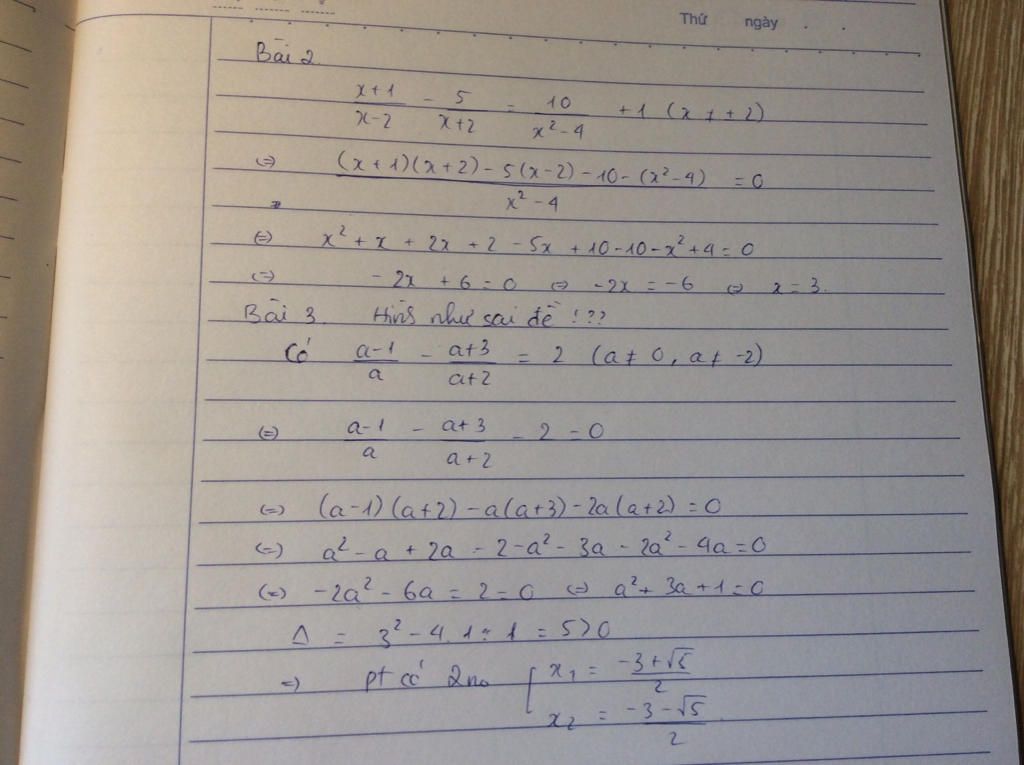 Thứ ngày . .
Bài 2
\frac{x+1}{x-2} - \frac{5}{x+2} = \frac{10}{x^2-4} + 1 (x ≠ ± 2)
(=) \frac{(x+1)(x+2) - 5(x-2) - 10 - (x^2-4)}{x^2-4} = 0
(=) x^2 + x + 2x + 2 - 5x + 10 - 10 - x^2 + 4 = 0
(=) -2x + 6 = 0 (=) -2x = -6 (=) x = 3.
Bài 3. Hình như sai đề !??
Có \frac{a-1}{a} - \frac{a+3}{a+2} = 2 (a ≠ 0, a ≠ -2)
(=) \frac{a-1}{a} - \frac{a+3}{a+2} - 2 = 0
(=) (a-1)(a+2) - a(a+3) - 2a(a+2) = 0
(=) a^2 - a + 2a - 2 - a^2 - 3a - 2a^2 - 4a = 0
(=) -2a^2 - 6a = 2 = 0 (=) a^2 + 3a + 1 = 0
Δ = 3^2 - 4.1.1 = 5 > 0
=) pt có 2 no [ x_1 = \frac{-3+\sqrt{5}}{2}
x_2 = \frac{-3-\sqrt{5}}{2}